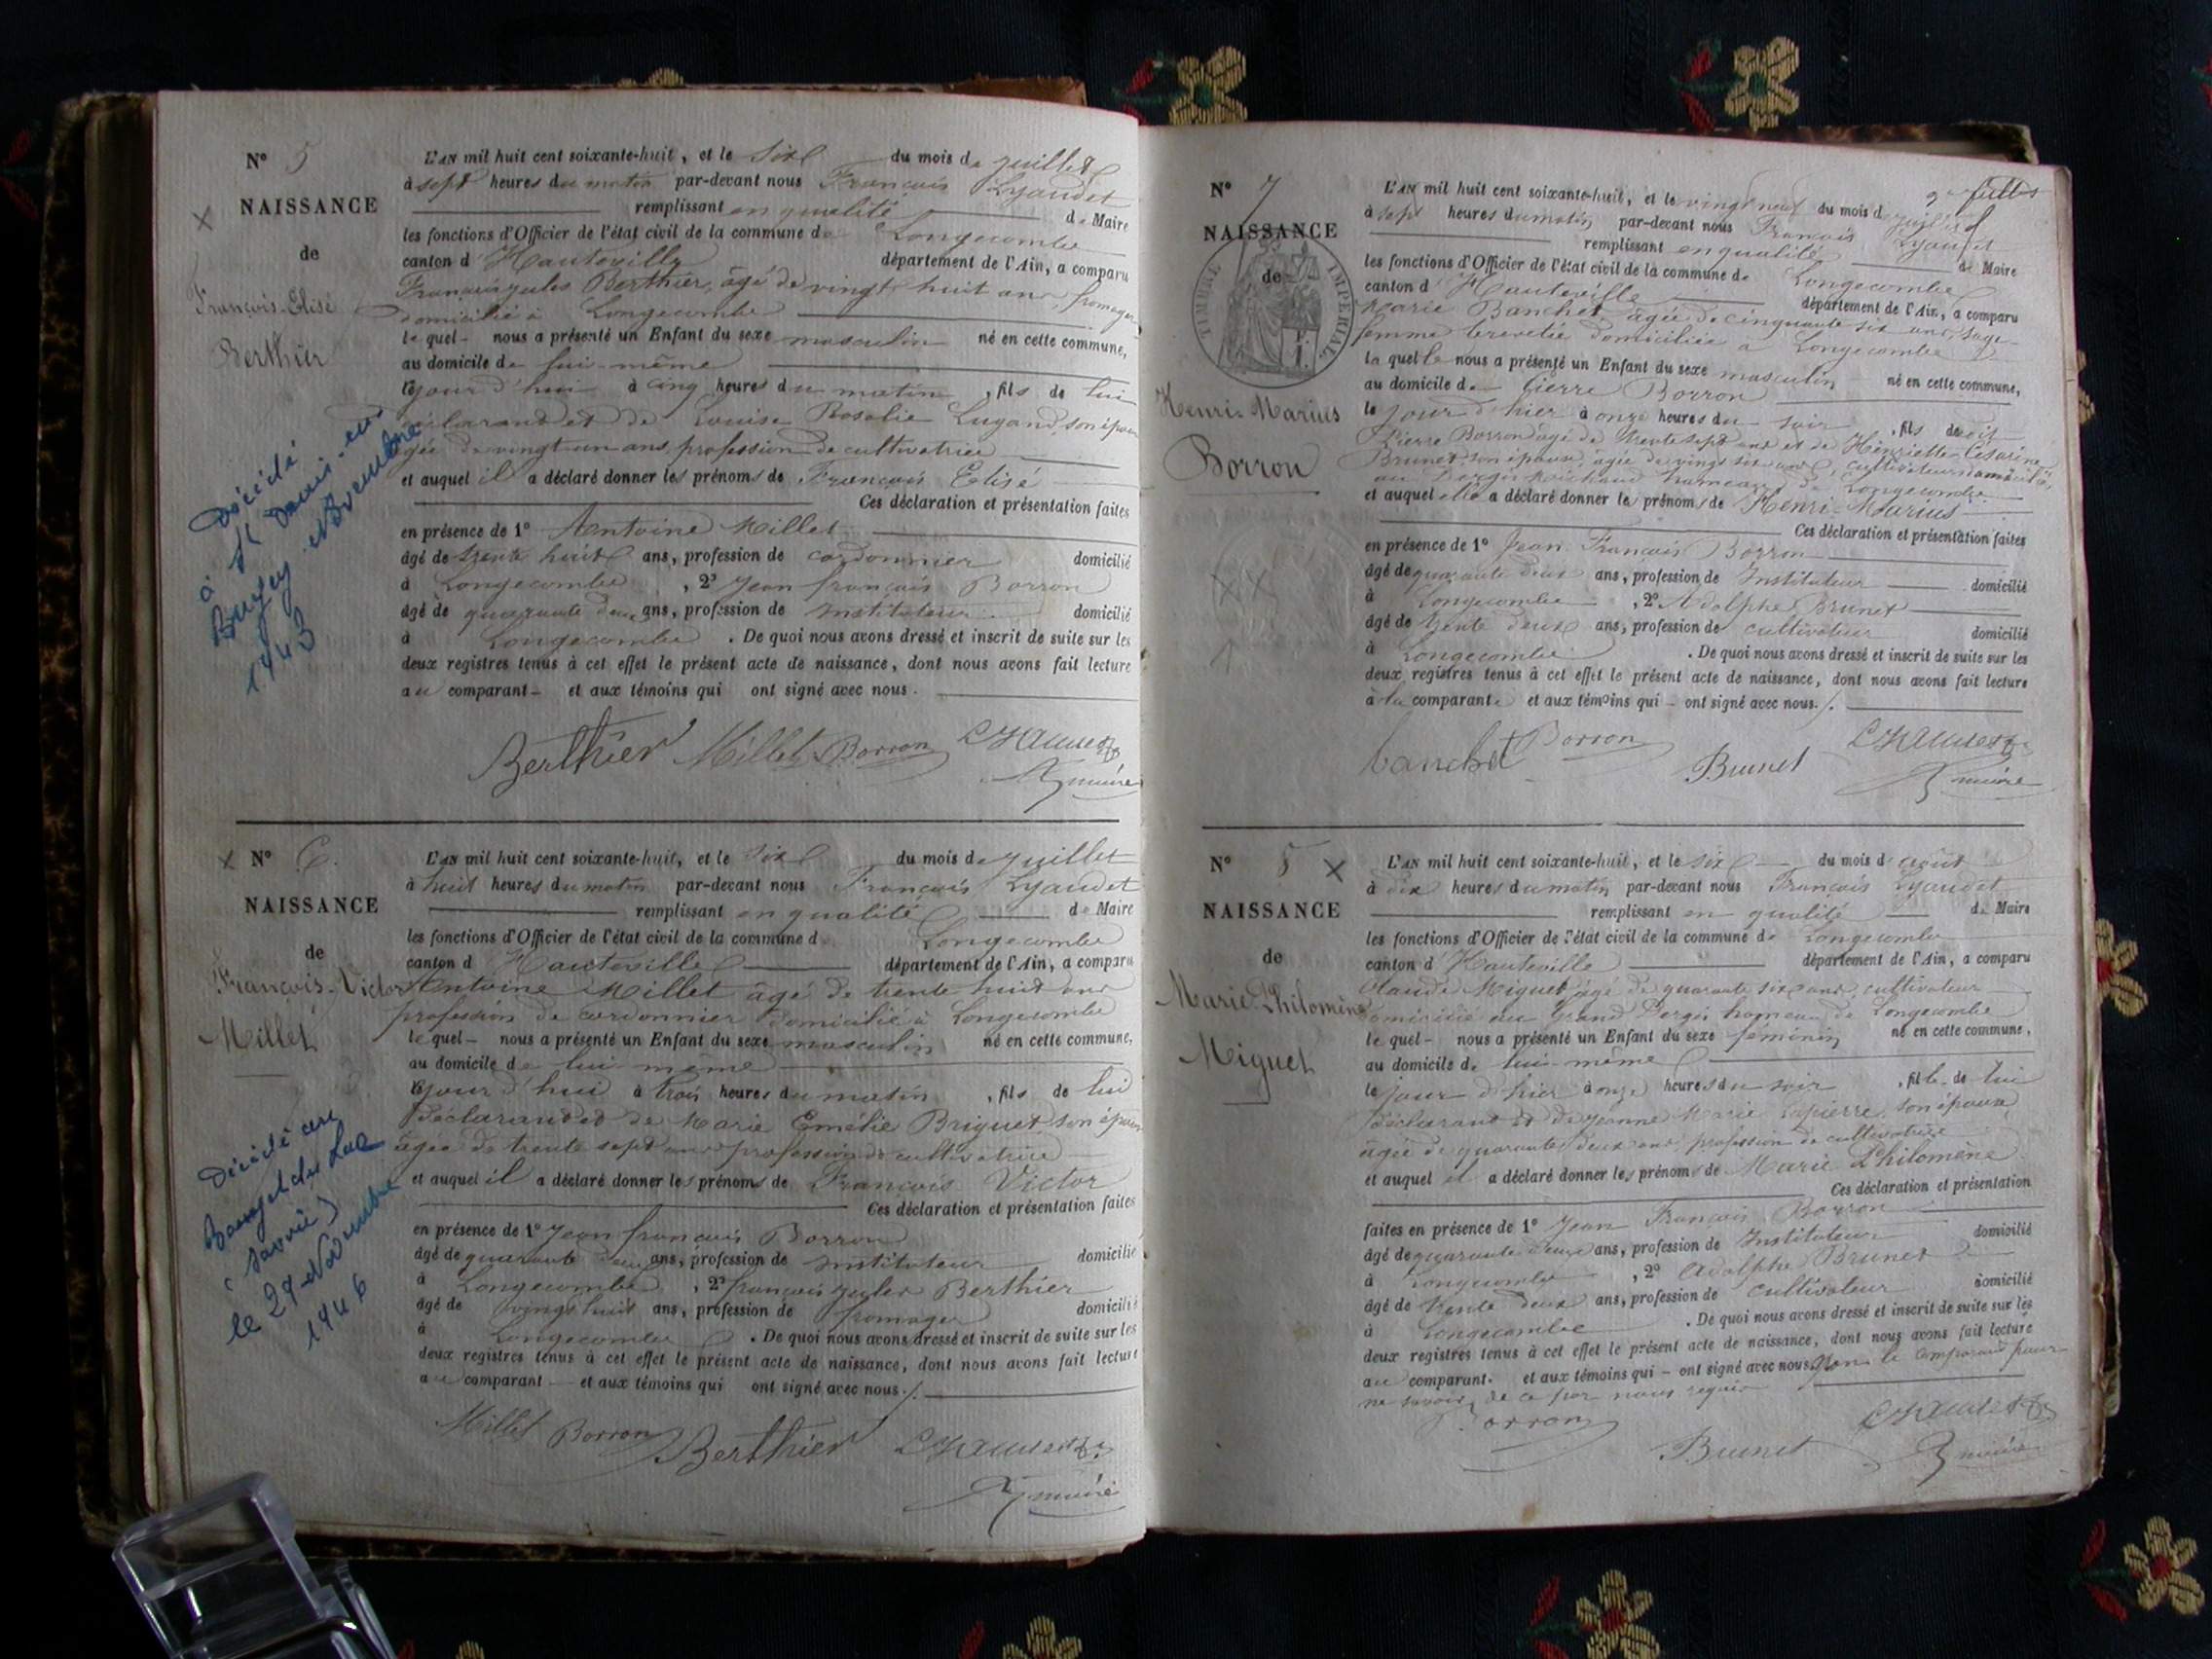 N° 5
NAISSANCE
de
François-Elisé
Berthier
Décédé
à St Denis-en
Bugey novembre
1943
L'AN mil huit cent soixante-huit, et le six du mois de juillet
à sept heures du matin par-devant nous François Lyaudet
remplissant en qualité de Maire
les fonctions d'Officier de l'état civil de la commune de Longecombe
canton d'Hauteville département de l'Ain, a comparu
François jules Berthier, âgé de vingt huit ans, fromager
domicilié à Longecombe
lequel nous a présenté un Enfant du sexe masculin né en cette commune,
au domicile de lui-même
le jour d'hui à cinq heures du matin, fils de lui
déclarant et de Louise Rosalie Lugand, son épouse
âgée de vingt un ans, profession de cultivatrice
et auquel il a déclaré donner les prénoms de François Elisé
Ces déclaration et présentation faites
en présence de 1° Antoine Millet
âgé de trente huit ans, profession de cordonnier domicilié
à Longecombe, 2° Jean françois Borron
âgé de quarante deux ans, profession de Instituteur domicilié
à Longecombe. De quoi nous avons dressé et inscrit de suite sur les
deux registres tenus à cet effet le présent acte de naissance, dont nous avons fait lecture
au comparant et aux témoins qui ont signé avec nous.
Berthier Millet Borron Lyaudet
maire
N° 6.
NAISSANCE
de
François-Victor
Millet
Décédé au
Bourget du Lac
(Savoie)
le 29 Novembre
1946
L'AN mil huit cent soixante-huit, et le six du mois de juillet
à huit heures du matin par-devant nous François Lyaudet
remplissant en qualité de Maire
les fonctions d'Officier de l'état civil de la commune d Longecombe
canton d Hauteville département de l'Ain, a comparu
Antoine Millet âgé de trente huit ans
profession de cordonnier domicilié à Longecombe
lequel nous a présenté un Enfant du sexe masculin né en cette commune,
au domicile de lui même
le jour d'hui à trois heures du matin, fils de lui
déclarant et de Marie Emélie Briguet son épouse
âgée de trente sept ans profession de cultivatrice
et auquel il a déclaré donner les prénoms de François Victor
Ces déclaration et présentation faites
en présence de 1° Jean françois Borron
âgé de quarante deux ans, profession de Instituteur domicilié
à Longecombe, 2° françois jules Berthier
âgé de vingt huit ans, profession de fromager domicilié
à Longecombe. De quoi nous avons dressé et inscrit de suite sur les
deux registres tenus à cet effet le présent acte de naissance, dont nous avons fait lecture
au comparant et aux témoins qui ont signé avec nous./.
Millet Borron Berthier Lyaudet
maire
N° 7
NAISSANCE
de
TIMBRE IMPÉRIAL
Henri-Marius
Borron
L'AN mil huit cent soixante-huit, et le vingt neuf du mois de juillet
à sept heures du matin, par-devant nous François Lyaudet
remplissant en qualité de Maire
les fonctions d'Officier de l'état civil de la commune de Longecombe
canton d'Hauteville département de l'Ain, a comparu
Marie Banchet âgée de cinquante six ans, sage-
femme brevetée domiciliée à Longecombe
laquelle nous a présenté un Enfant du sexe masculin né en cette commune,
au domicile de Pierre Borron
le jour d'hier à onze heures du soir, fils dudit
Pierre Borron âgé de trente sept ans et de Henriette Césarine
Brunet son épouse, âgée de vingt six ans, cultivateurs
hameau de Longecombe
et auquel elle a déclaré donner le prénom de Henri-Marius
Ces déclaration et présentation faites
en présence de 1° Jean François Borron
âgé de quarante deux ans, profession de Instituteur domicilié
à Longecombe, 2° Adolphe Brunet
âgé de trente deux ans, profession de cultivateur domicilié
à Longecombe. De quoi nous avons dressé et inscrit de suite sur les
deux registres tenus à cet effet le présent acte de naissance, dont nous avons fait lecture
à la comparante et aux témoins qui ont signé avec nous./.
banchet Borron Brunet Lyaudet
maire
N° 8
NAISSANCE
de
Marie Philomène
Miguet
L'AN mil huit cent soixante-huit, et le six du mois d'août
à dix heures du matin, par-devant nous François Lyaudet
remplissant en qualité de Maire
les fonctions d'Officier de l'état civil de la commune de Longecombe
canton d'Hauteville département de l'Ain, a comparu
Claude Miguet, âgé de quarante six ans, cultivateur
domicilié au Grand Dergis hameau de Longecombe
lequel nous a présenté un Enfant du sexe féminin né en cette commune,
au domicile de lui-même
le jour d'hier à onze heures du soir, fille de lui
déclarant et de Jeanne Marie Lapierre, son épouse,
âgée de quarante deux ans profession de cultivatrice
et auquel il a déclaré donner les prénoms de Marie Philomène
Ces déclaration et présentation
faites en présence de 1° Jean François Borron
âgé de quarante deux ans, profession de Instituteur domicilié
à Longecombe, 2° Adolphe Brunet
âgé de trente deux ans, profession de cultivateur domicilié
à Longecombe. De quoi nous avons dressé et inscrit de suite sur les
deux registres tenus à cet effet le présent acte de naissance, dont nous avons fait lecture
au comparant et aux témoins qui ont signé avec nous, non le comparant pour
ne savoir, de ce par nous requis
Borron Brunet Lyaudet
maire